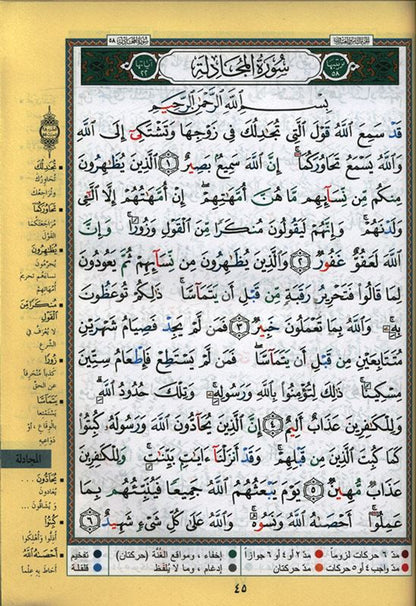 سُورَةُ المُجَادلَةِ
ترتيبها ٥٨
آياتها ٢٢
بِسْمِ اللَّهِ الرَّحْمَٰنِ الرَّحِيمِ
قَدْ سَمِعَ اللَّهُ قَوْلَ الَّتِي تُجَٰدِلُكَ فِي زَوْجِهَا وَتَشْتَكِي إِلَى اللَّهِ
وَاللَّهُ يَسْمَعُ تَحَاوُرَكُمَا إِنَّ اللَّهَ سَمِيعٌ بَصِيرٌ ١ الَّذِينَ يُظَٰهِرُونَ
مِنكُم مِّن نِّسَآئِهِم مَّا هُنَّ أُمَّهَٰتِهِمْ إِنْ أُمَّهَٰتُهُمْ إِلَّا الَّٰٓـِٔي
وَلَدْنَهُمْ وَإِنَّهُمْ لَيَقُولُونَ مُنكَرًا مِّنَ الْقَوْلِ وَزُورًا وَإِنَّ
اللَّهَ لَعَفُوٌّ غَفُورٌ ٢ وَالَّذِينَ يُظَٰهِرُونَ مِن نِّسَآئِهِمْ ثُمَّ يَعُودُونَ
لِمَا قَالُوا فَتَحْرِيرُ رَقَبَةٍ مِّن قَبْلِ أَن يَتَمَآسَّا ذَٰلِكُمْ تُوعَظُونَ
بِهِ وَاللَّهُ بِمَا تَعْمَلُونَ خَبِيرٌ ٣ فَمَن لَّمْ يَجِدْ فَصِيَامُ شَهْرَيْنِ
مُتَتَابِعَيْنِ مِن قَبْلِ أَن يَتَمَآسَّا فَمَن لَّمْ يَسْتَطِعْ فَإِطْعَامُ سِتِّينَ
مِسْكِينًا ذَٰلِكَ لِتُؤْمِنُوا بِاللَّهِ وَرَسُولِهِ وَتِلْكَ حُدُودُ اللَّهِ
وَلِلْكَٰفِرِينَ عَذَابٌ أَلِيمٌ ٤ إِنَّ الَّذِينَ يُحَآدُّونَ اللَّهَ وَرَسُولَهُ كُبِتُوا
كَمَا كُبِتَ الَّذِينَ مِن قَبْلِهِمْ وَقَدْ أَنزَلْنَآ ءَايَٰتٍ بَيِّنَٰتٍ وَلِلْكَٰفِرِينَ
عَذَابٌ مُّهِينٌ ٥ يَوْمَ يَبْعَثُهُمُ اللَّهُ جَمِيعًا فَيُنَبِّئُهُم بِمَا
عَمِلُوا أَحْصَىٰهُ اللَّهُ وَنَسُوهُ وَاللَّهُ عَلَىٰ كُلِّ شَيْءٍ شَهِيدٌ ٦
تُجَٰدِلُكَ
تُحَاوِرُكَ
وتُراجِعُكَ
تَحَاوُرَكُمَا
مُراجَعَتَكما
القَوْلَ
يُظَٰهِرُونَ
يُحرِّمُون
نساءَهم تحريمَ
أمهاتِهم
مُنكَرًا مِّنَ
الْقَوْلِ
لا يُعْرَفُ في
الشَّرع
زُورًا
كَذِباً مُنْحَرِفاً
عن الحقِّ
يَتَمَآسَّا
يَسْتَمْتِعا
بالوِقَاعِ، أو
دَوَاعِيه
المجادلة
يُحَآدُّونَ ...
يُعادون
كُبِتُوا
أُذِلُّوا وأُهْلِكوا
أَحْصَىٰهُ اللَّهُ
أحَاطَ به عِلْماً
مدّ ٦ حركات لزوماً مدّ ٢ أو ٤ أو ٦ جوازاً إخفاء، ومواقع الغُنَّة (حركتان) تفخيم
مدّ واجب ٤ أو ٥ حركات مدّ حركتان إدغام، وما لا يُلفَظ قلقلة
٤٥